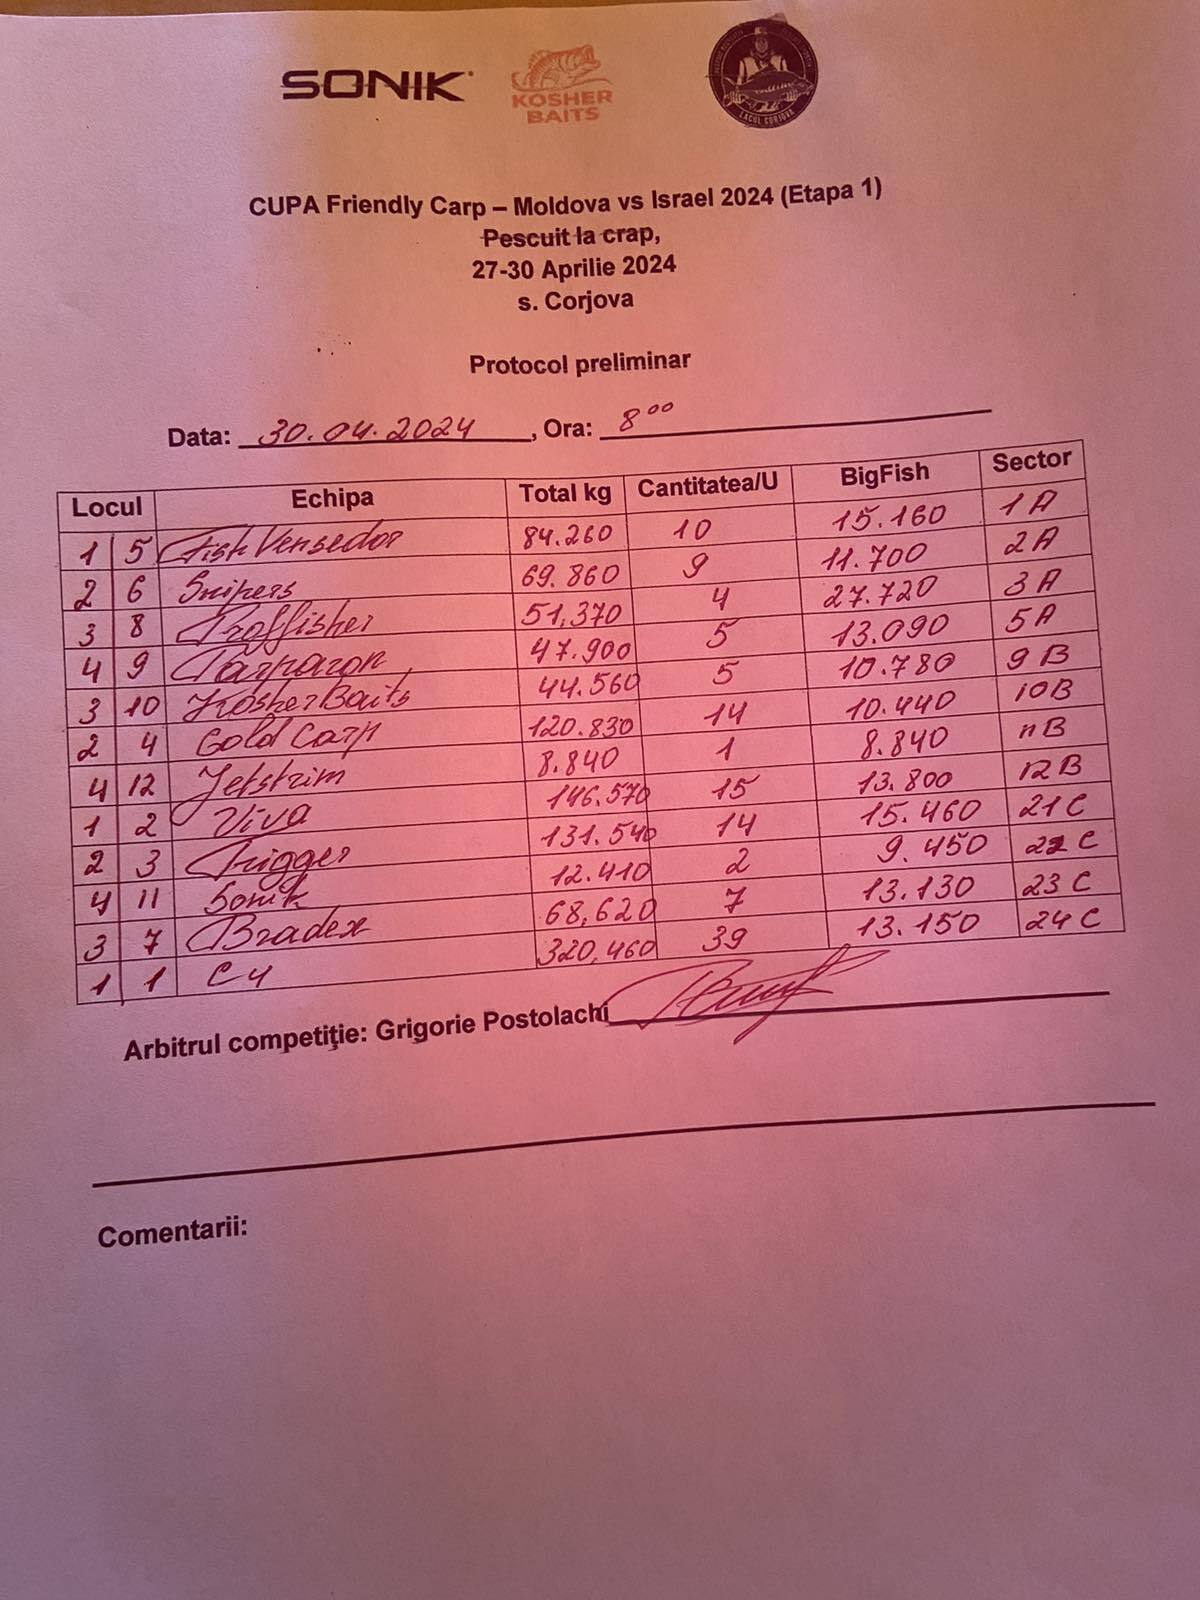 SONIK
KOSHER
BAITS
LACUL CORJOVA
CUPA Friendly Carp – Moldova vs Israel 2024 (Etapa 1)
Pescuit la crap,
27-30 Aprilie 2024
s. Corjova
Protocol preliminar
Data: 30.04.2024, Ora: 8⁰⁰
Locul Echipa Total kg Cantitatea/U BigFish Sector
1 5 FishVensedor 84.260 10 15.160 1A
2 6 Snipers 69.860 9 11.700 2A
3 8 Proffisher 51,370 4 27.720 3A
4 9 47.900 5 13.090 5A
3 10 KosherBaits 44.560 5 10.780 9B
2 4 Gold Carp 120.830 14 10.440 10B
4 12 Jetstrim 8.840 1 8.840 11B
1 2 Viva 146.570 15 13.800 12B
2 3 Trigger 131.540 14 15.460 21C
4 11 Sonik 12.410 2 9.450 22C
3 7 Bradex 68,620 7 13.130 23C
1 1 C4 320,460 39 13.150 24C
Arbitrul competiție: Grigorie Postolachi
Comentarii: